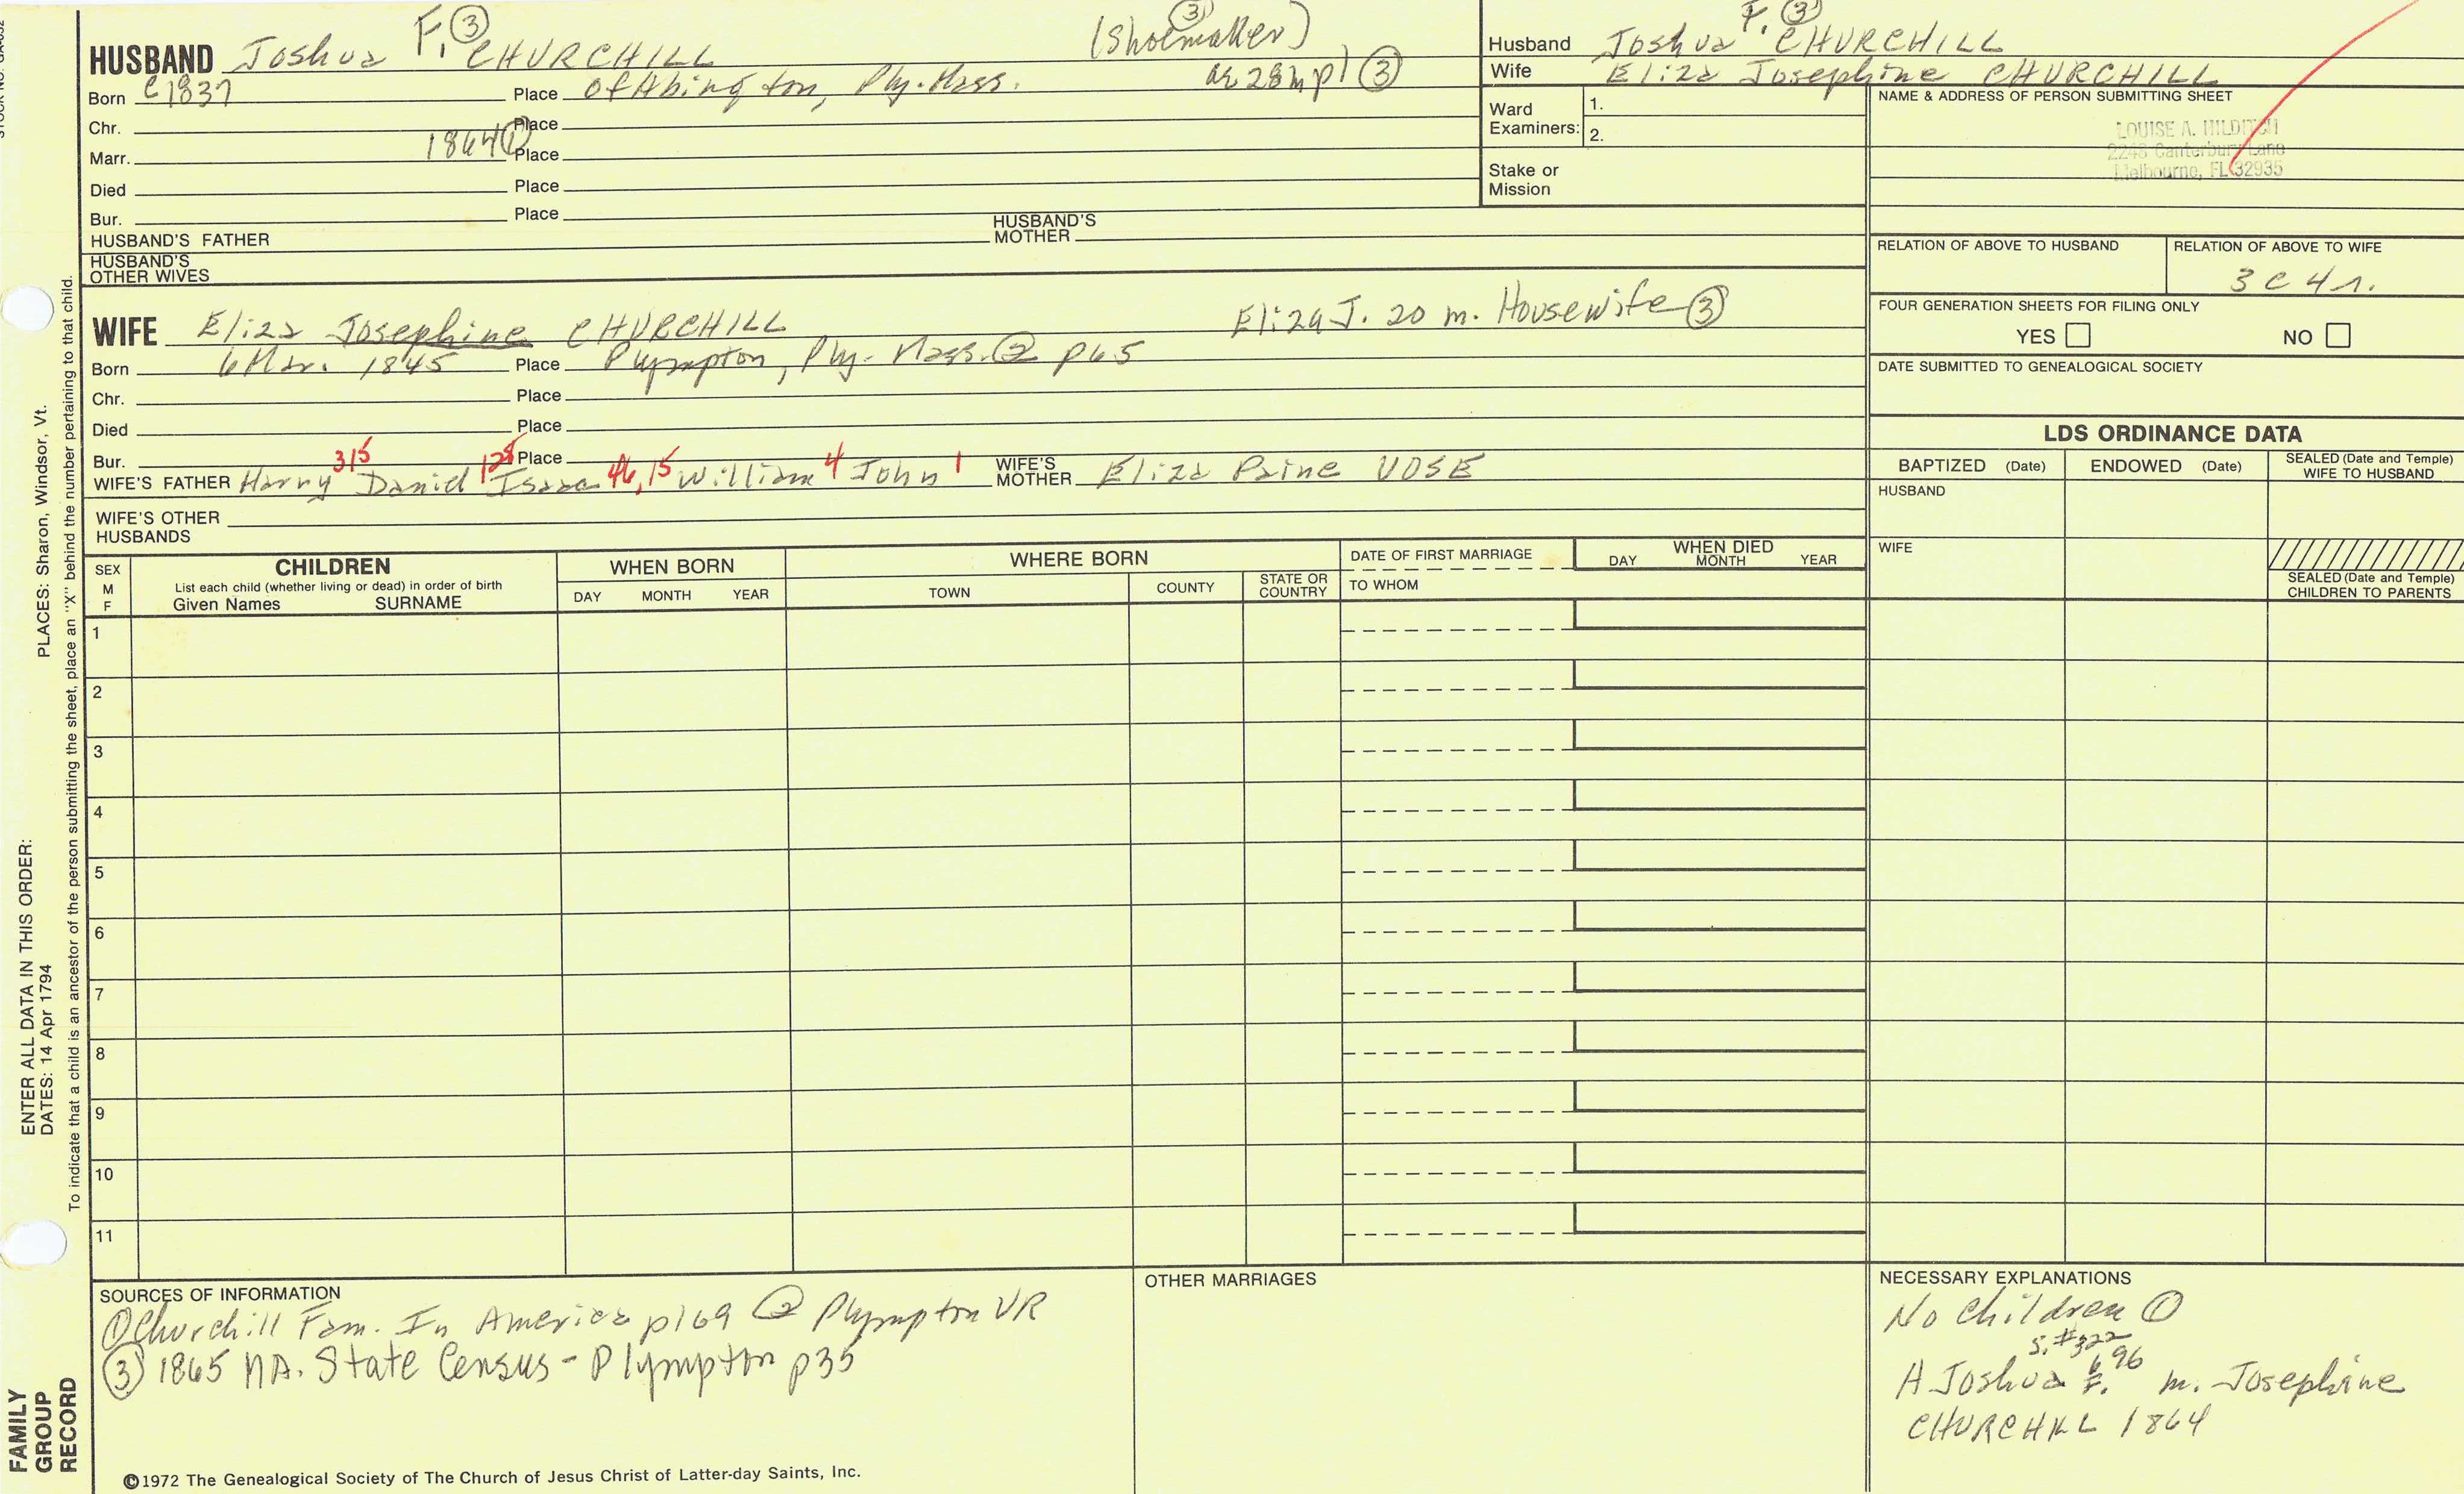 HUSBAND Joshua F. ③ CHURCHILL (Shoemaker) ③
Born c1837 Place of Abington, Ply. Mass. ③
Chr. Place
Marr. 1864 ① Place
Died Place
Bur. Place
HUSBAND'S FATHER HUSBAND'S MOTHER
HUSBAND'S OTHER WIVES
Husband Joshua F. ③ CHURCHILL
Wife Eliza Josephine CHURCHILL
Ward Examiners: 1.
2.
Stake or Mission
NAME & ADDRESS OF PERSON SUBMITTING SHEET
LOUISE A. HILDITCH
2248 Canterbury Lane
Melbourne, FL 32935
RELATION OF ABOVE TO HUSBAND RELATION OF ABOVE TO WIFE
3 C 4 r.
FOUR GENERATION SHEETS FOR FILING ONLY
YES NO
DATE SUBMITTED TO GENEALOGICAL SOCIETY
WIFE Eliza Josephine CHURCHILL Eliza J. 20 m. Housewife ③
Born 6 Mar. 1845 Place Plympton, Ply. Mass. ② p65
Chr. Place
Died Place
Bur. Place
WIFE'S FATHER Harry 315 Daniel 125 Isaac 46, 15 William 4 John 1 WIFE'S MOTHER Eliza Paine VOSE
WIFE'S OTHER HUSBANDS
LDS ORDINANCE DATA
BAPTIZED (Date) ENDOWED (Date) SEALED (Date and Temple) WIFE TO HUSBAND
HUSBAND
WIFE
SEALED (Date and Temple) CHILDREN TO PARENTS
SEX M F
CHILDREN
List each child (whether living or dead) in order of birth
Given Names SURNAME
WHEN BORN
DAY MONTH YEAR
WHERE BORN
TOWN COUNTY STATE OR COUNTRY
DATE OF FIRST MARRIAGE
TO WHOM
WHEN DIED
DAY MONTH YEAR
1
2
3
4
5
6
7
8
9
10
11
SOURCES OF INFORMATION
① Churchill Fam. In America p169 ② Plympton VR
③ 1865 MA. State Census - Plympton p35
OTHER MARRIAGES
NECESSARY EXPLANATIONS
No Children ①
S. #322
A Joshua F. 6 96 m. Josephine
CHURCHILL 1864
©1972 The Genealogical Society of The Church of Jesus Christ of Latter-day Saints, Inc.
FAMILY GROUP RECORD
ENTER ALL DATA IN THIS ORDER:
DATES: 14 Apr 1794
PLACES: Sharon, Windsor, Vt.
To indicate that a child is an ancestor of the person submitting the sheet, place an "X" behind the number pertaining to that child.